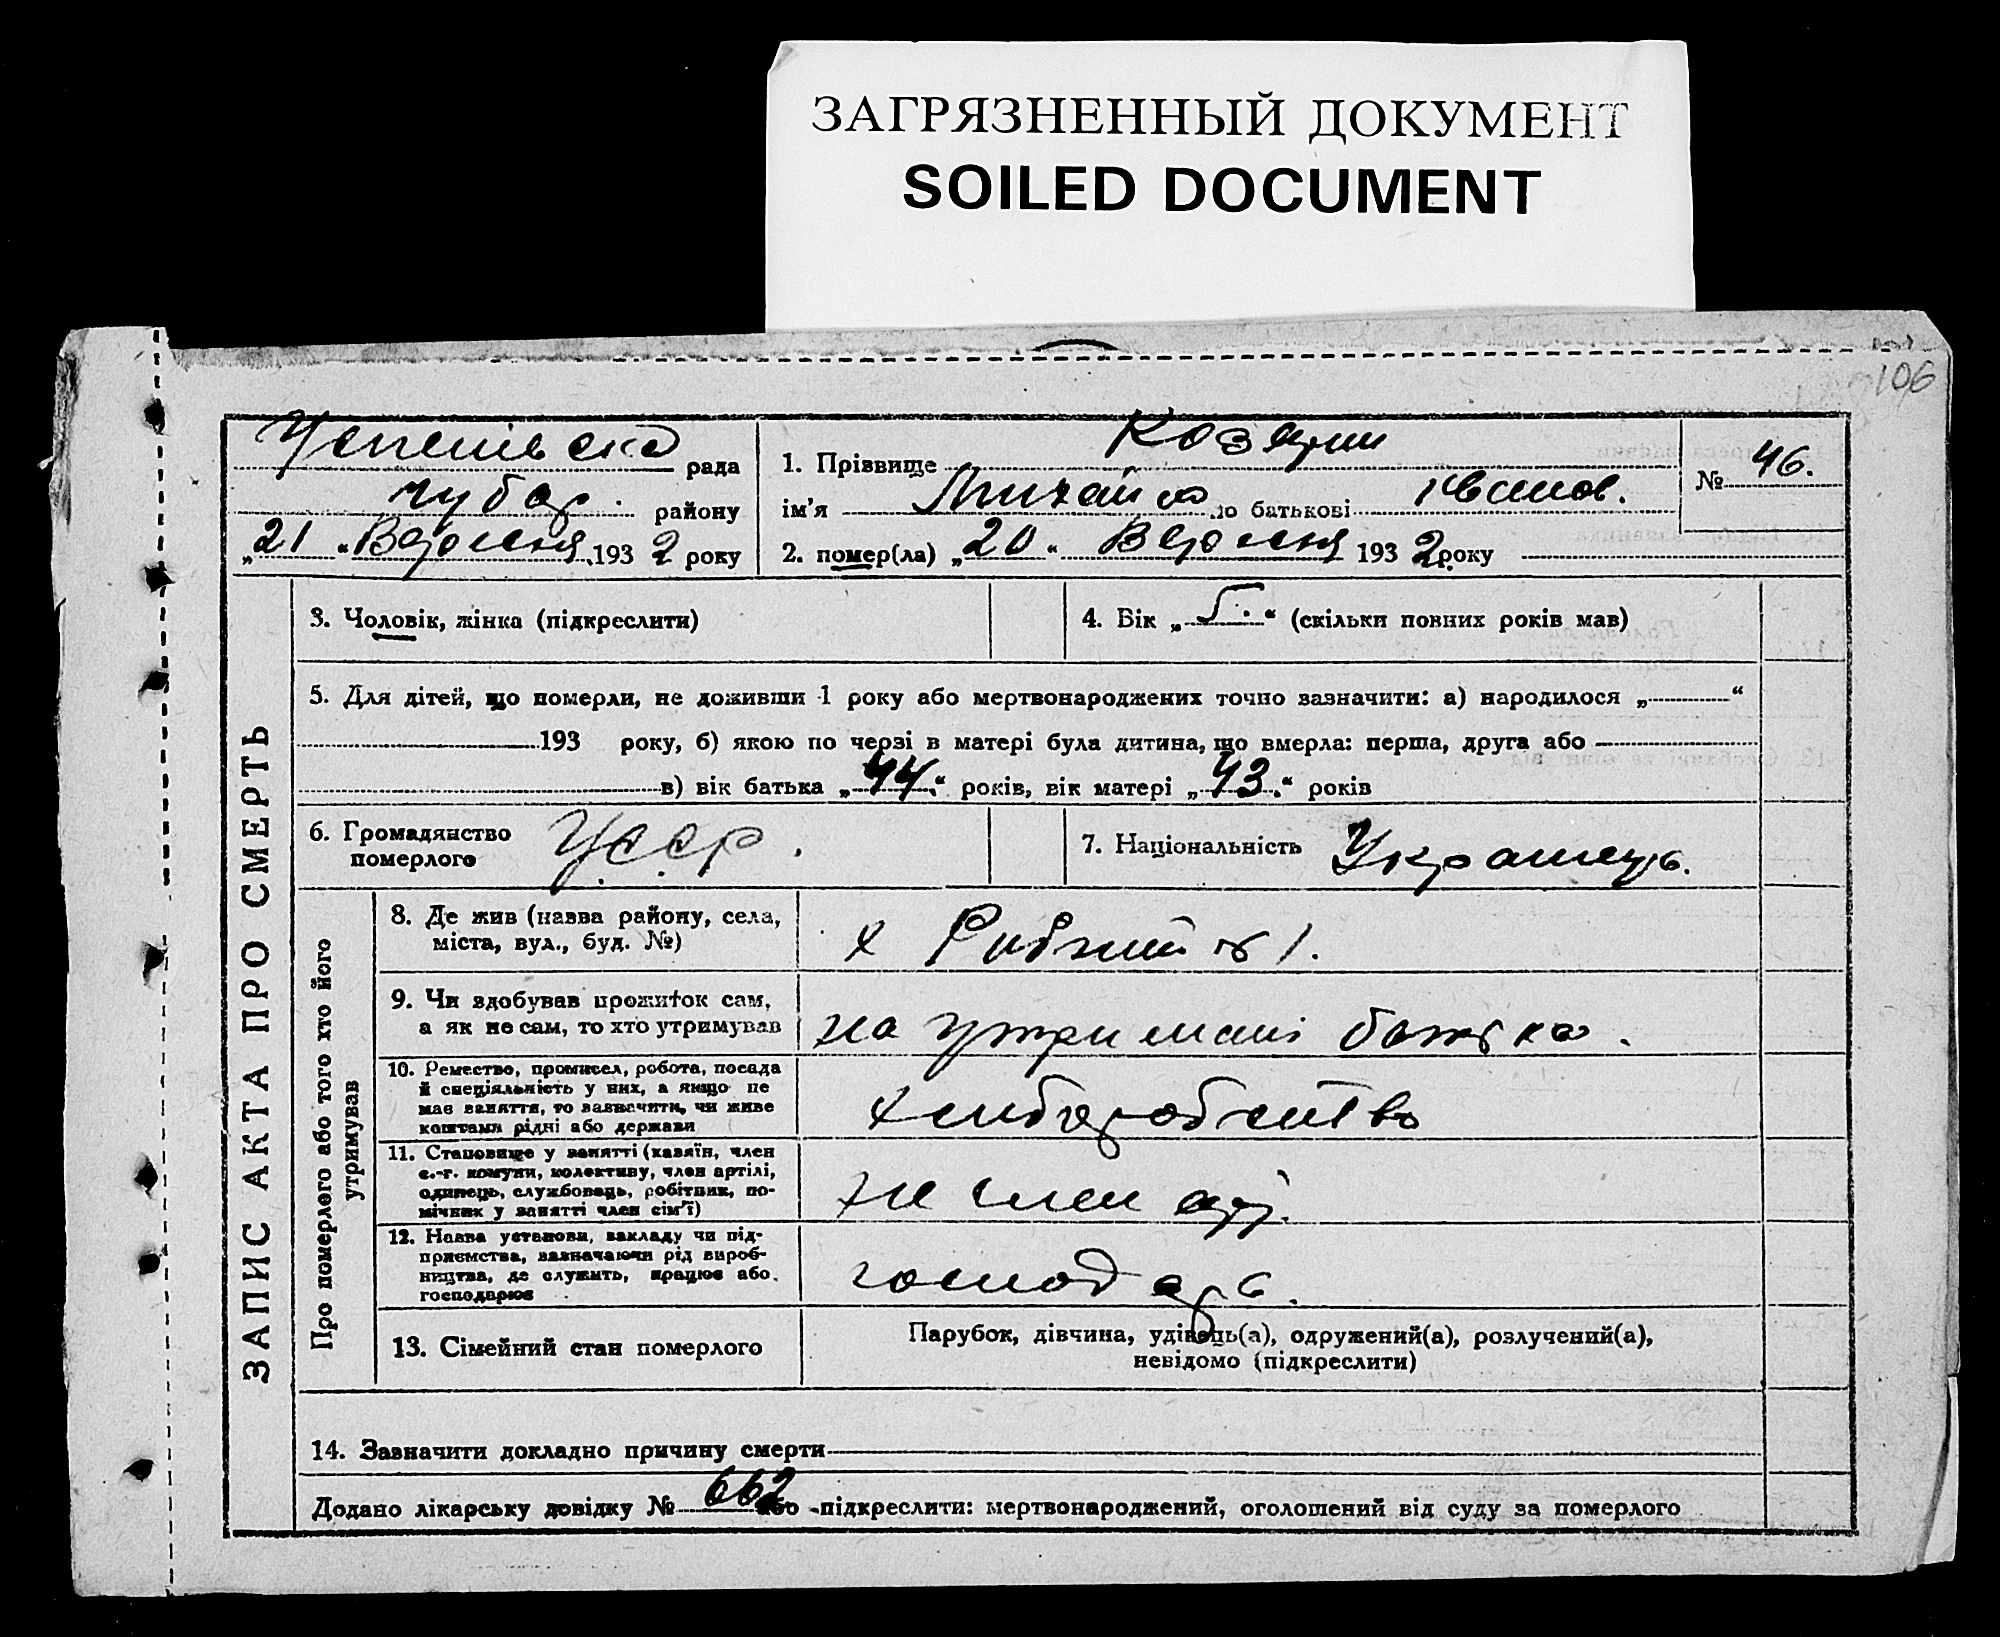 ЗАГРЯЗНЕННЫЙ ДОКУМЕНТ
SOILED DOCUMENT
106
Успенівська рада
Чубар. району
„21“ Вересня 1932 року
1. Прізвище
ім'я Михайло по батькові Іванов.
2. помер(ла) „20“ Вересня 1932 року
№ 46.
ЗАПИС АКТА ПРО СМЕРТЬ
3. Чоловік, жінка (підкреслити)
4. Вік „5.“ (скільки повних років мав)
5. Для дітей, що померли, не доживши 1 року або мертвонароджених точно зазначити: а) народилося „ “
193 року, б) якою по черзі в матері була дитина, що вмерла: перша, друга або
в) вік батька „44.“ років, вік матері „43.“ років
6. Громадянство
померлого
УССР.
7. Національність Украінець.
Про померлого або того хто його
утримував
8. Де жив (назва району, села,
міста, вул., буд. №)
х 1.
9. Чи здобував прожиток сам,
а як не сам, то хто утримував
на утримані батька.
10. Ремество, промисел, робота, посада
й спеціяльність у них, а якщо не
має заняття, то зазначити, чи живе
коштами рідні або держави
хліборобство
11. Становище у занятті (хазяїн, член
с.-г. комуни, колективу, член артілі,
одинець, службовець, робітник, по-
мічник у занятті член сім'ї)
не член арт.
12. Назва установи, закладу чи під-
приємства, зазначаючи рід вироб-
ництва, де служить, працює або
господарює
господар
13. Сімейний стан померлого
Парубок, дівчина, удівець(а), одружений(а), розлучений(а),
невідомо (підкреслити)
14. Зазначити докладно причину смерти
Додано лікарську довідку № 662 або підкреслити: мертвонароджений, оголошений від суду за померлого